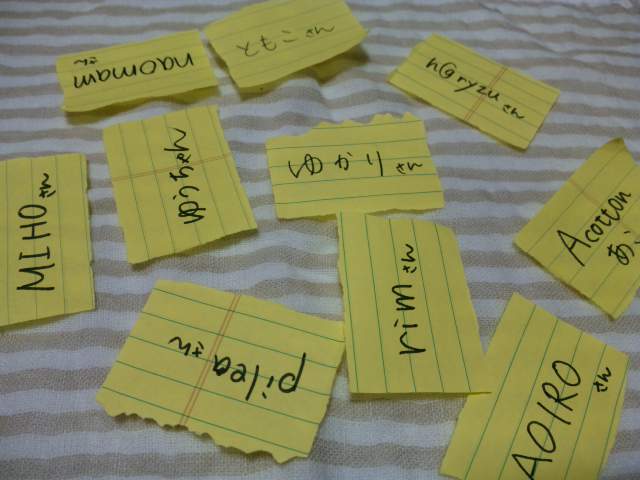 naomam
さん
ともこさん
h@ryzu さん
ゆうちゃん
ゆかり さん
MIHO さん
Acotton
rim さん
pilea さん
AOIRO
さん